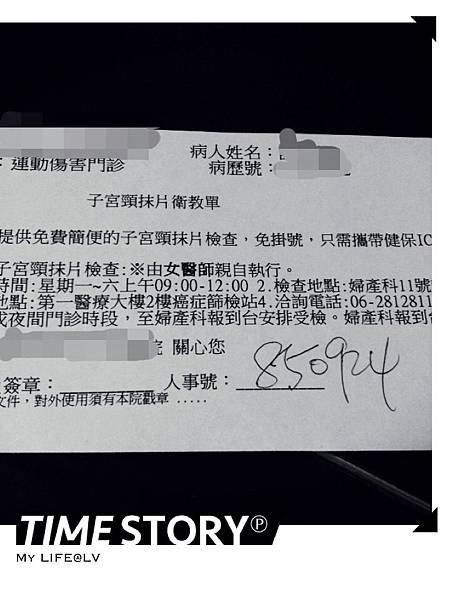 病人姓名：
：運動傷害門診
病歷號：
子宮頸抹片衛教單
提供免費簡便的子宮頸抹片檢查，免掛號，只需攜帶健保IC
子宮頸抹片檢查:※由女醫師親自執行。
時間:星期一~六上午09:00-12:00 2.檢查地點:婦產科11號
地點:第一醫療大樓2樓癌症篩檢站4.洽詢電話:06-2812811
或夜間門診時段，至婦產科報到台安排受檢。婦產科報到台
院 關心您
簽章：
人事號：850924
文件，對外使用須有本院戳章 .....
TIME STORY℗
MY LIFE@LV